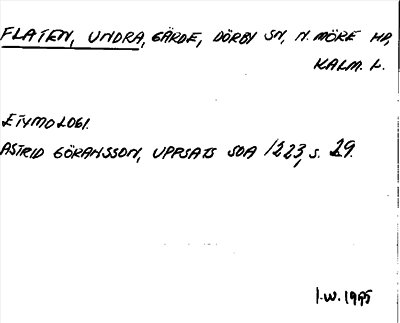 FLATEN, UNDRA, GÄRDE, DÖRBY SN, N. MÖRE HD,
KALM. L.
ETYMOLOGI.
ASTRID GÖRANSSON, UPPSATS SOA 1223, s. 29.
I.W. 1995